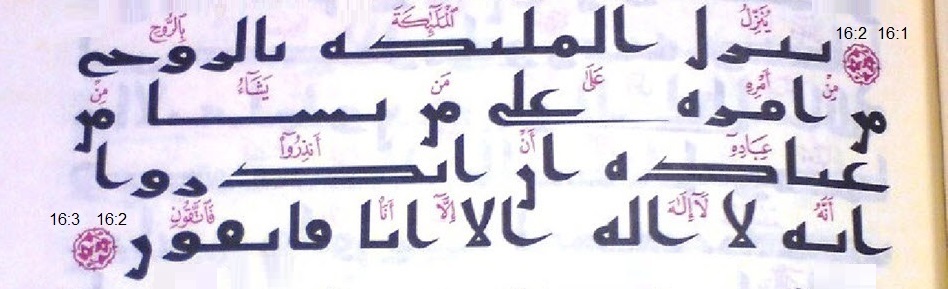 16:2 16:1
يُنَزِّلُ ٱلْمَلَٰٓئِكَةَ بِٱلرُّوحِ
ينزل المليكه بالروح
مِنْ أَمْرِهِۦ عَلَىٰ مَن يَشَآءُ مِنْ
من امره على من يشا من
عِبَادِهِۦٓ أَنْ أَنذِرُوٓا۟
عباده ان انذروا
أَنَّهُۥ لَآ إِلَٰهَ إِلَّآ أَنَا۠ فَٱتَّقُونِ
انه لا اله الا انا فاتقون
16:3 16:2